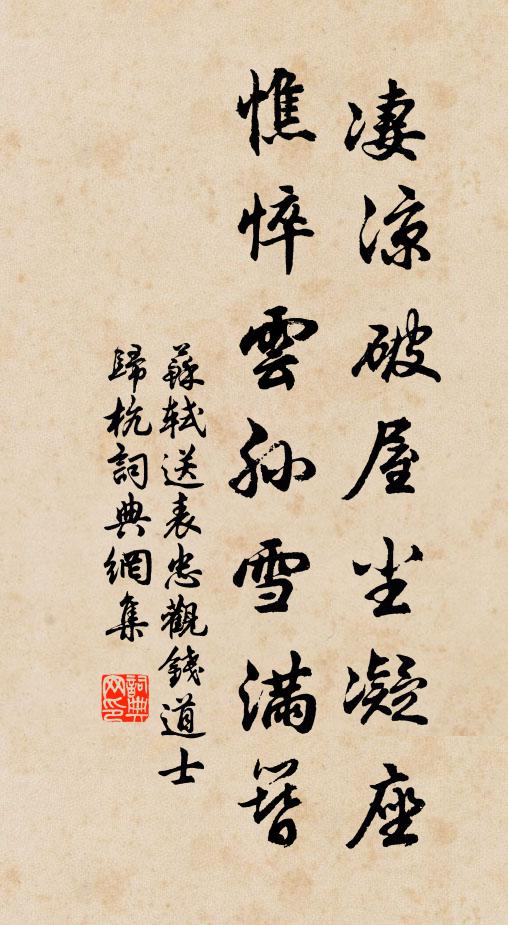 凄涼破屋尘凝座
憔悴雲孙雪满簪
蘇軾送表忠觀錢道士
歸杭詞典網集
詞典网印